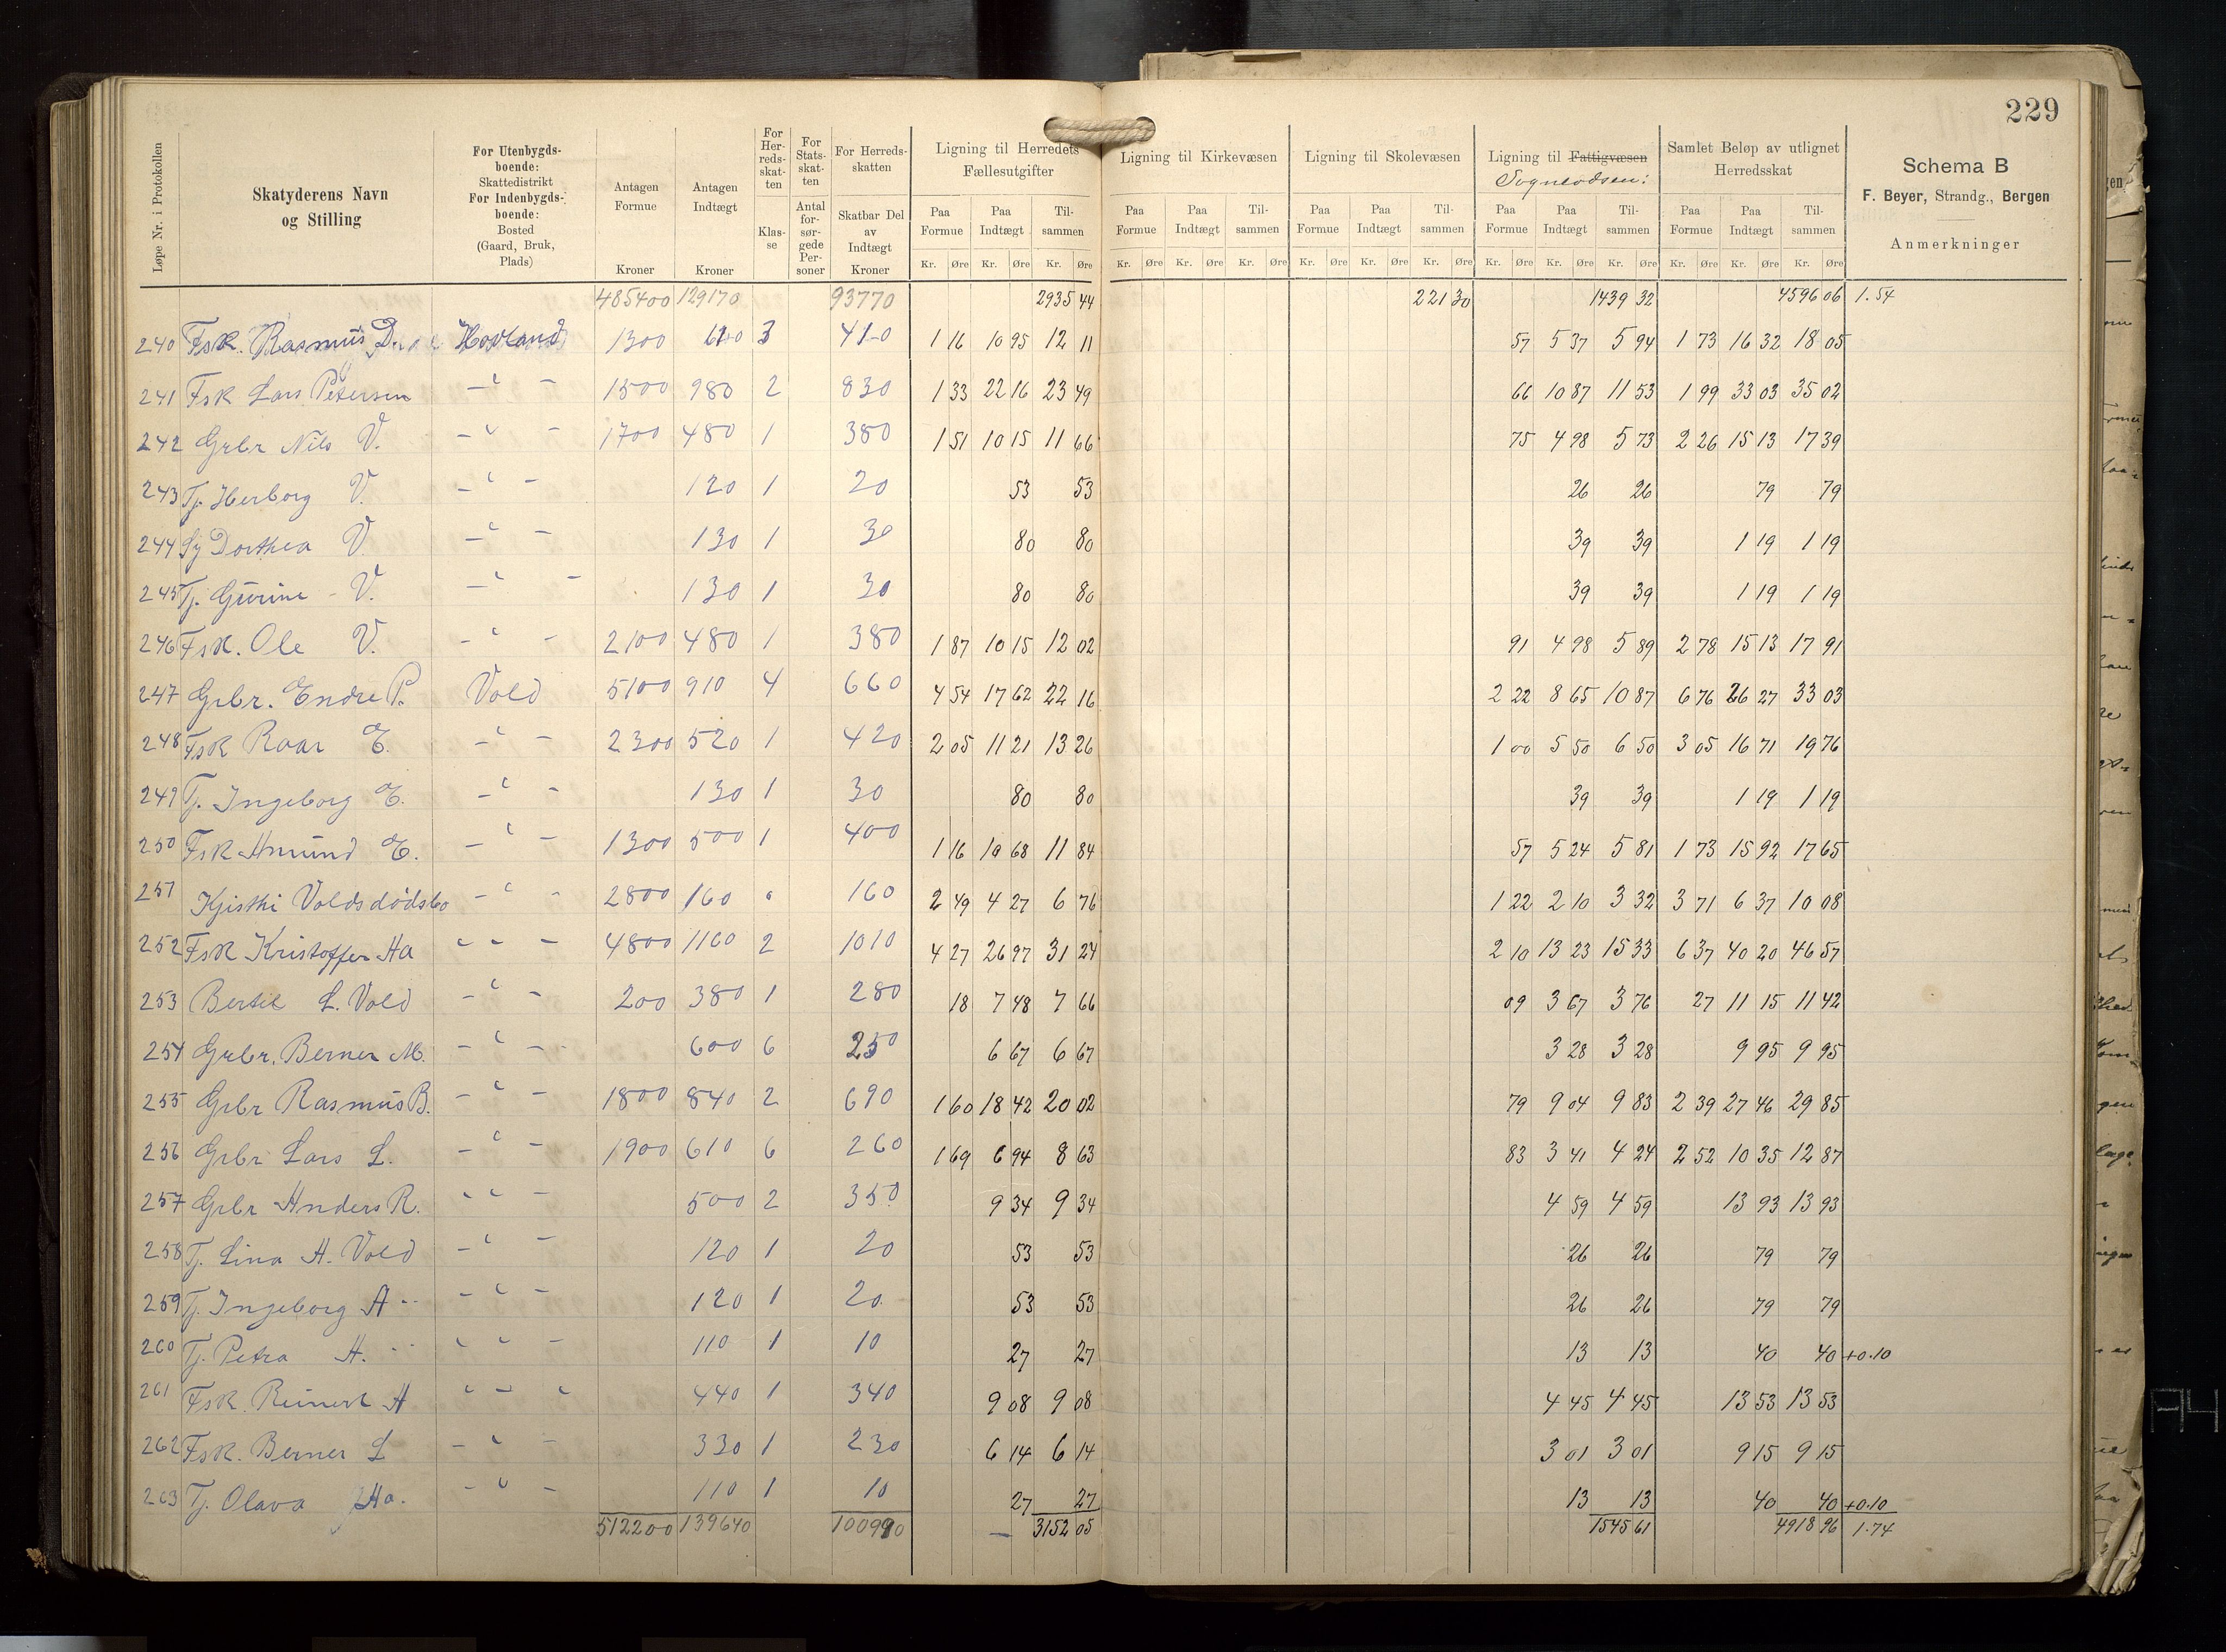 229
Løpe Nr. i Protokollen | Skatyderens Navn og Stilling | For Utenbygds-boende: Skattedistrikt For Indenbygds-boende: Bosted (Gaard, Bruk, Plads) | Antagen Formue Kroner | Antagen Indtægt Kroner | For Her-reds-skat-ten Klas-se | For Stats-skat-ten Antal for-sør-gede Per-soner | For Herreds-skatten Skatbar Del av Indtægt Kroner | Ligning til Herredets Fællesutgifter | Ligning til Kirkevæsen | Ligning til Skolevæsen | Ligning til Fattigvæsen Sogneutlodsen: | Samlet Beløp av utlignet Herredsskat | Schema B F. Beyer, Strandg., Bergen Anmerkninger
Paa Formue Kr. Øre | Paa Indtægt Kr. Øre | Til-sammen Kr. Øre | Paa Formue Kr. Øre | Paa Indtægt Kr. Øre | Til-sammen Kr. Øre | Paa Formue Kr. Øre | Paa Indtægt Kr. Øre | Til-sammen Kr. Øre | Paa Formue Kr. Øre | Paa Indtægt Kr. Øre | Til-sammen Kr. Øre | Paa Formue Kr. Øre | Paa Indtægt Kr. Øre | Til-sammen Kr. Øre
485400 129170 93770 2935 44 221 30 1439 32 4596 06 1.54
240 Fsk. Rasmus D. Hovland 1300 610 3 410 1 16 10 95 12 11 57 5 37 5 94 1 73 16 32 18 05
241 Fsk Lars Petersen - " - 1500 980 2 830 1 33 22 16 23 49 66 10 87 11 53 1 99 33 03 35 02
242 Grbr Nils V. - " - 1700 480 1 380 1 51 10 15 11 66 75 4 98 5 73 2 26 15 13 17 39
243 Tj. Herborg V. - " - 120 1 20 53 53 26 26 79 79
244 Sy Dorthea V. - " - 130 1 30 80 80 39 39 1 19 1 19
245 Tj. Gurine V. - " - 130 1 30 80 80 39 39 1 19 1 19
246 Fsk. Ole V. - " - 2100 480 1 380 1 87 10 15 12 02 91 4 98 5 89 2 78 15 13 17 91
247 Grbr. Endre P. Vold 5100 910 4 660 4 54 17 62 22 16 2 22 8 65 10 87 6 76 26 27 33 03
248 Fsk Roar E. - " - 2300 520 1 420 2 05 11 21 13 26 1 00 5 50 6 50 3 05 16 71 19 76
249 Tj. Ingeborg E. - " - 130 1 30 80 80 39 39 1 19 1 19
250 Fsk Amund E. - " - 1300 500 1 400 1 16 10 68 11 84 57 5 24 5 81 1 73 15 92 17 65
251 Kjisthi Volds dødsbo - " - 2800 160 " 160 2 49 4 27 6 76 1 22 2 10 3 32 3 71 6 37 10 08
252 Fsk Kristoffer Ha " " - 4800 1160 2 1010 4 27 26 97 31 24 2 10 13 23 15 33 6 37 40 20 46 57
253 Bertel L. Vold - " - 200 380 1 280 18 7 48 7 66 09 3 67 3 76 27 11 15 11 42
254 Grbr. Berner M. - " - 600 6 250 6 67 6 67 3 28 3 28 9 95 9 95
255 Grbr Rasmus B. - " - 1800 840 2 690 1 60 18 42 20 02 79 9 04 9 83 2 39 27 46 29 85
256 Grbr Lars L. - " - 1900 610 6 260 1 69 6 94 8 63 83 3 41 4 24 2 52 10 35 12 87
257 Grbr Anders R. " " - 500 2 350 9 34 9 34 4 59 4 59 13 93 13 93
258 Tj. Lina A. Vold - " - 120 1 20 53 53 26 26 79 79
259 Tj. Ingeborg A - " - 120 1 20 53 53 26 26 79 79
260 Tj. Petra A. " " - 110 1 10 27 27 13 13 40 40 +0.10
261 Fsk. Reinert A " - " 440 1 340 9 08 9 08 4 45 4 45 13 53 13 53
262 Fsk. Berner L - " - 330 1 230 6 14 6 14 3 01 3 01 9 15 9 15
263 Tj. Olava Ha. - " - 110 1 10 27 27 13 13 40 40 +0.10
512200 139640 100990 3152 05 1545 61 4918 96 1.74